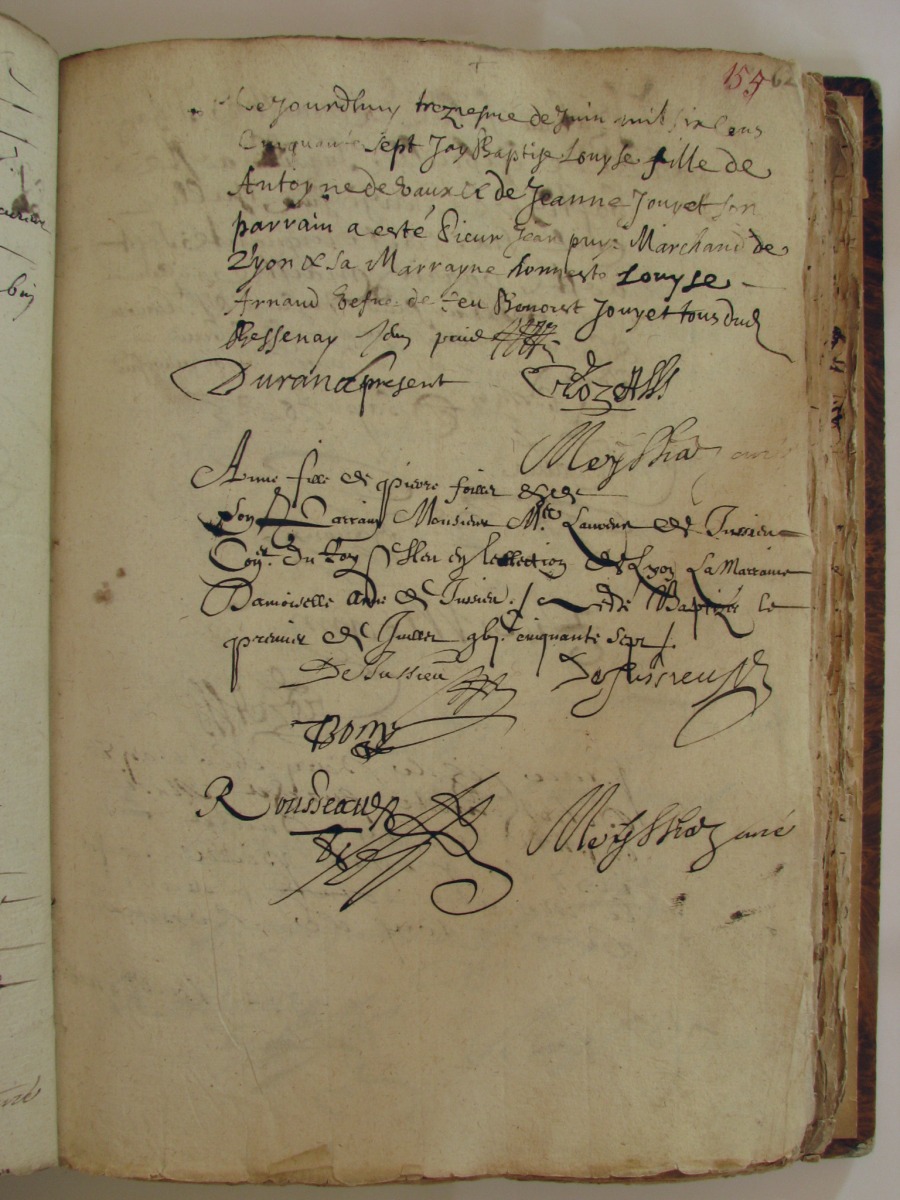 159 62
Ce Jourdhuy treziesme de Juin mil six Cens
Cinquante Sept Jay Baptise Louyse fille de
Antoyne de Vaux & de Jeanne Jouyet son
parrain a esté Sieur Jean puys Marchand de
Lyon & sa Marrayne honneste Louyse
Arnaud vefue de feu Benoist Jouyet tous dud
Bessenay
Durand present
Anne fille de Pierre
Son Parrain Monsieur Mre Laurens de Jussieu
Coner. du Roy Esleu en leslection de Lyon La Marraine
Damoiselle Anne de Jussieu / Baptizée le
premier de Juillet cinquante sept /.
DeJussieu DeJussieu
Bony
Rousseau
curé